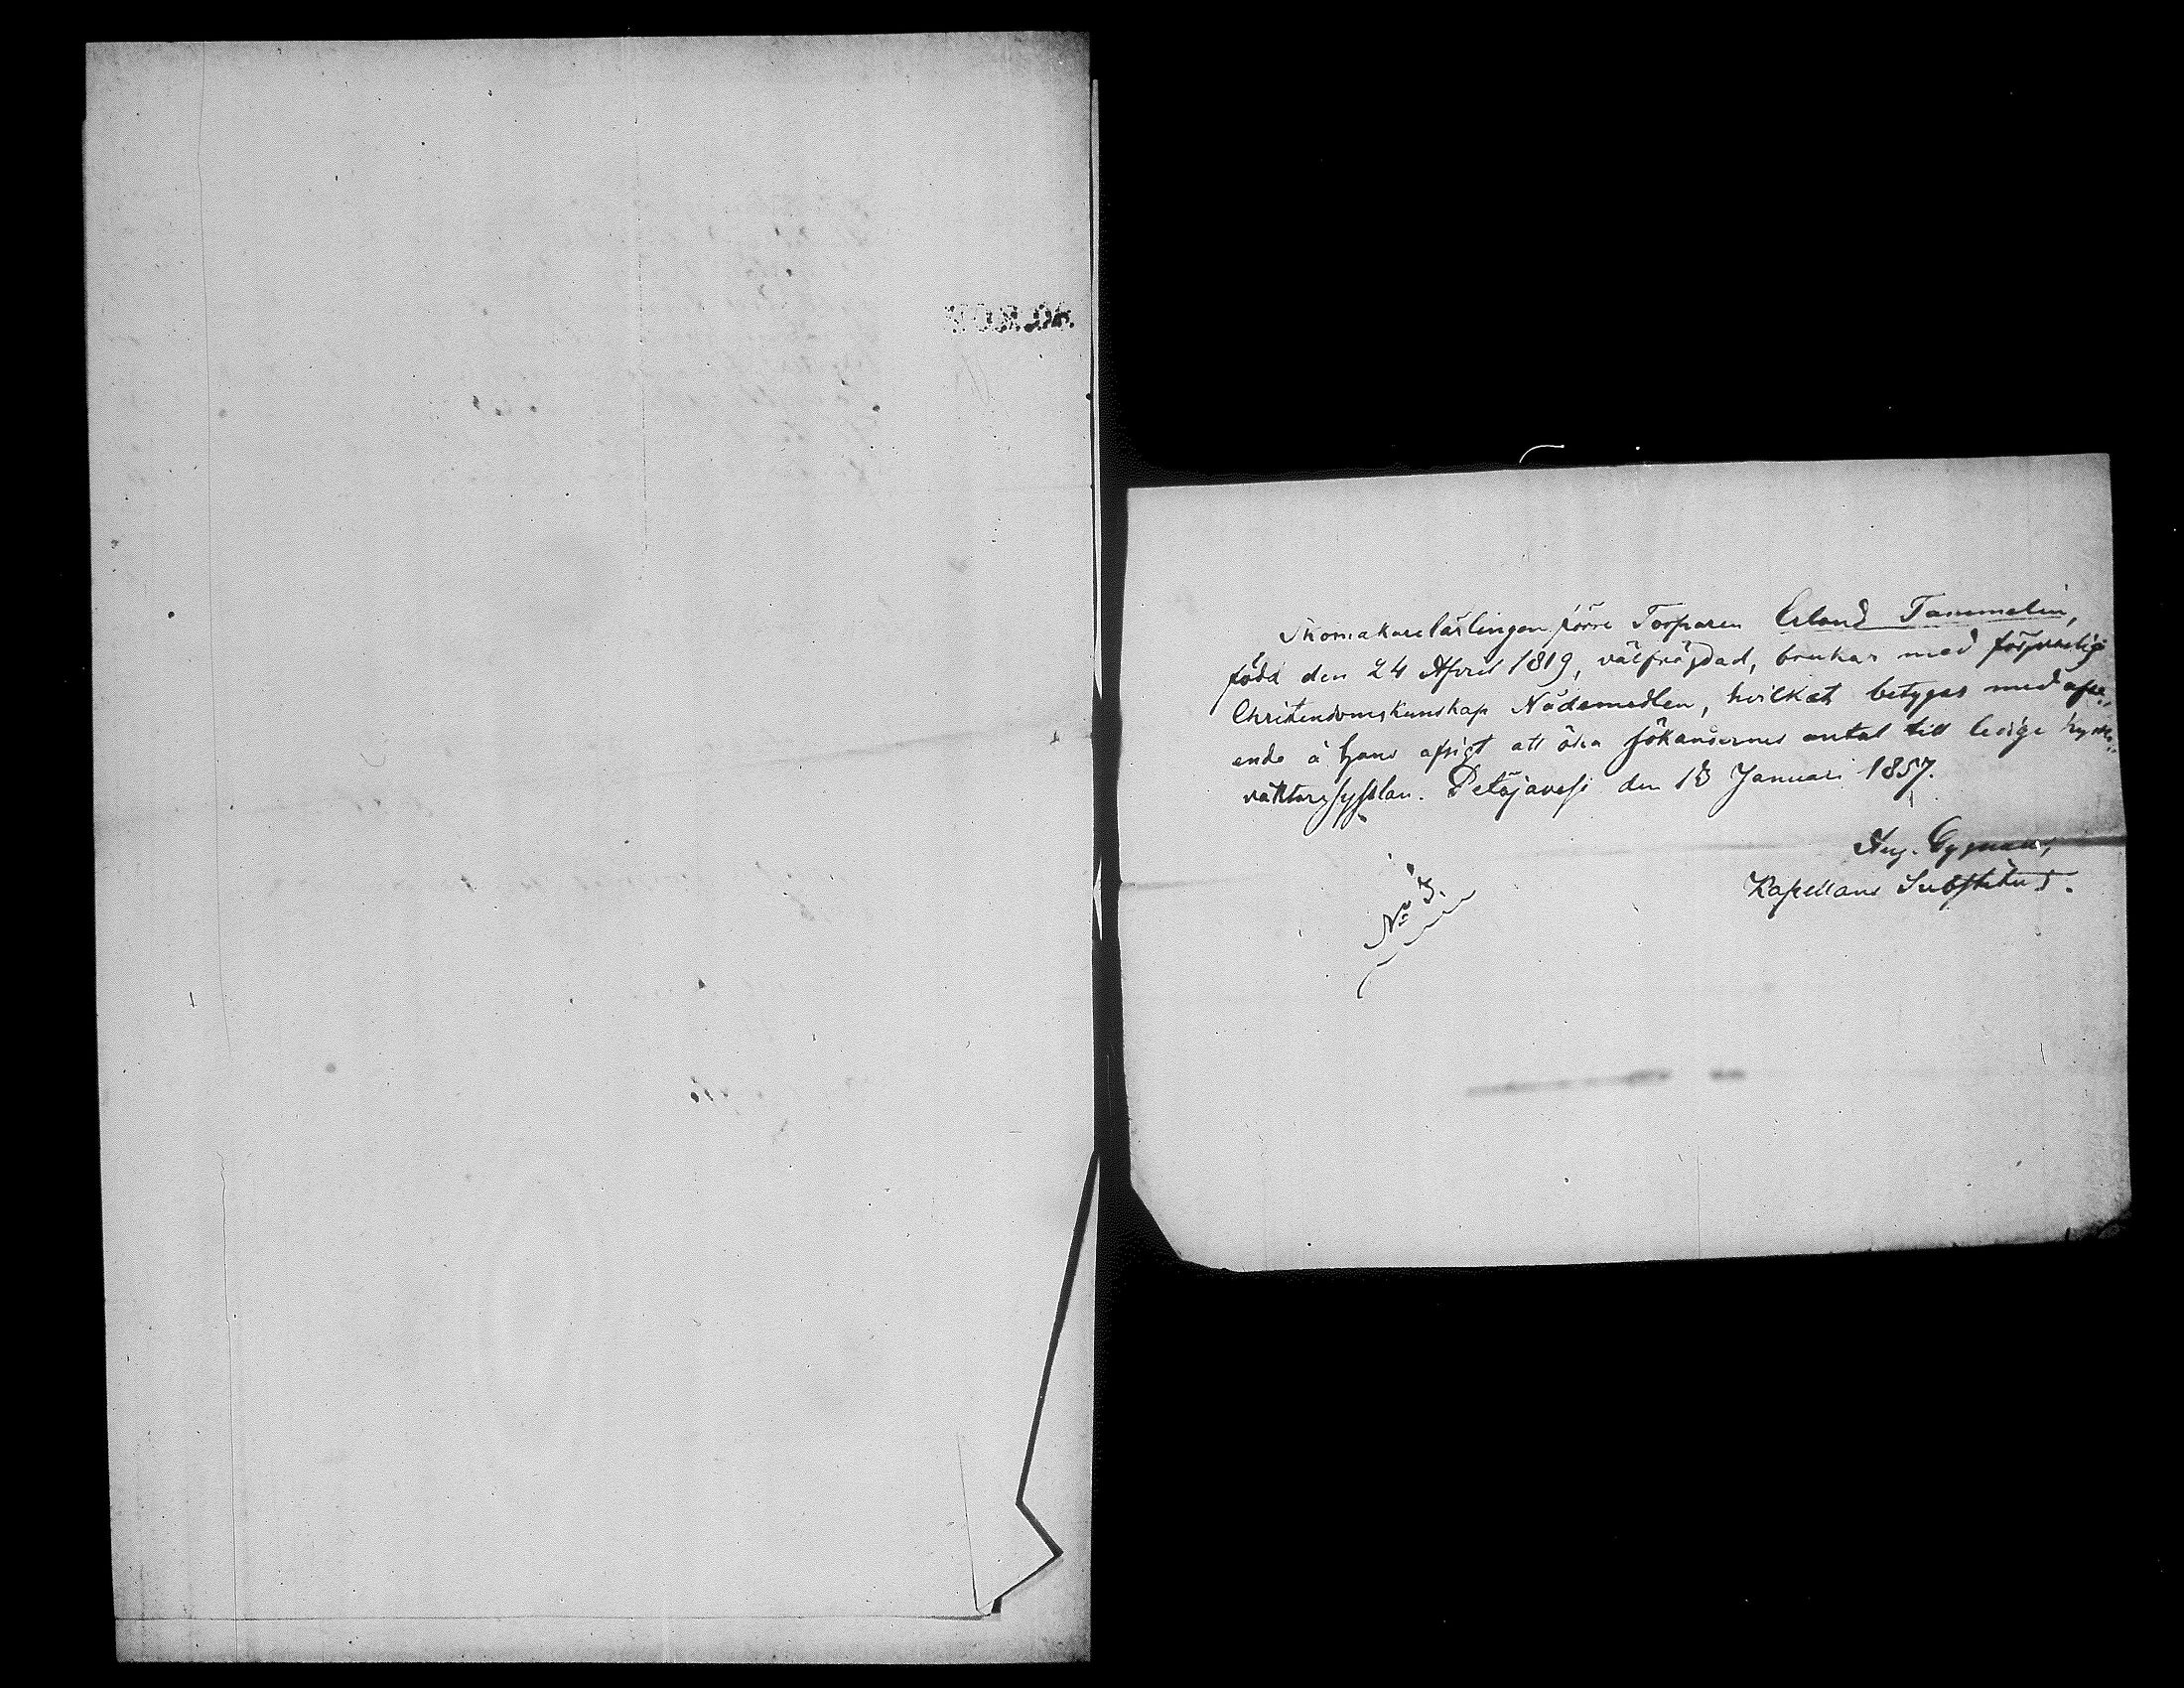 Skomakarelärlingen förre Torparen Erland Tammelin,
född den 24 April 1819, välfrägdad, brukar med försvarlig
Christendomskunskap Nådemedlen, hvilket betygas med afse-
ende å hans afsigt att öka sökandernes antal till ledige kyrko-
väktaresysslan. Petäjävesi den 13 Januari 1857.
Aug. Cygnæus,
Kapellans Substitut.
No 3.